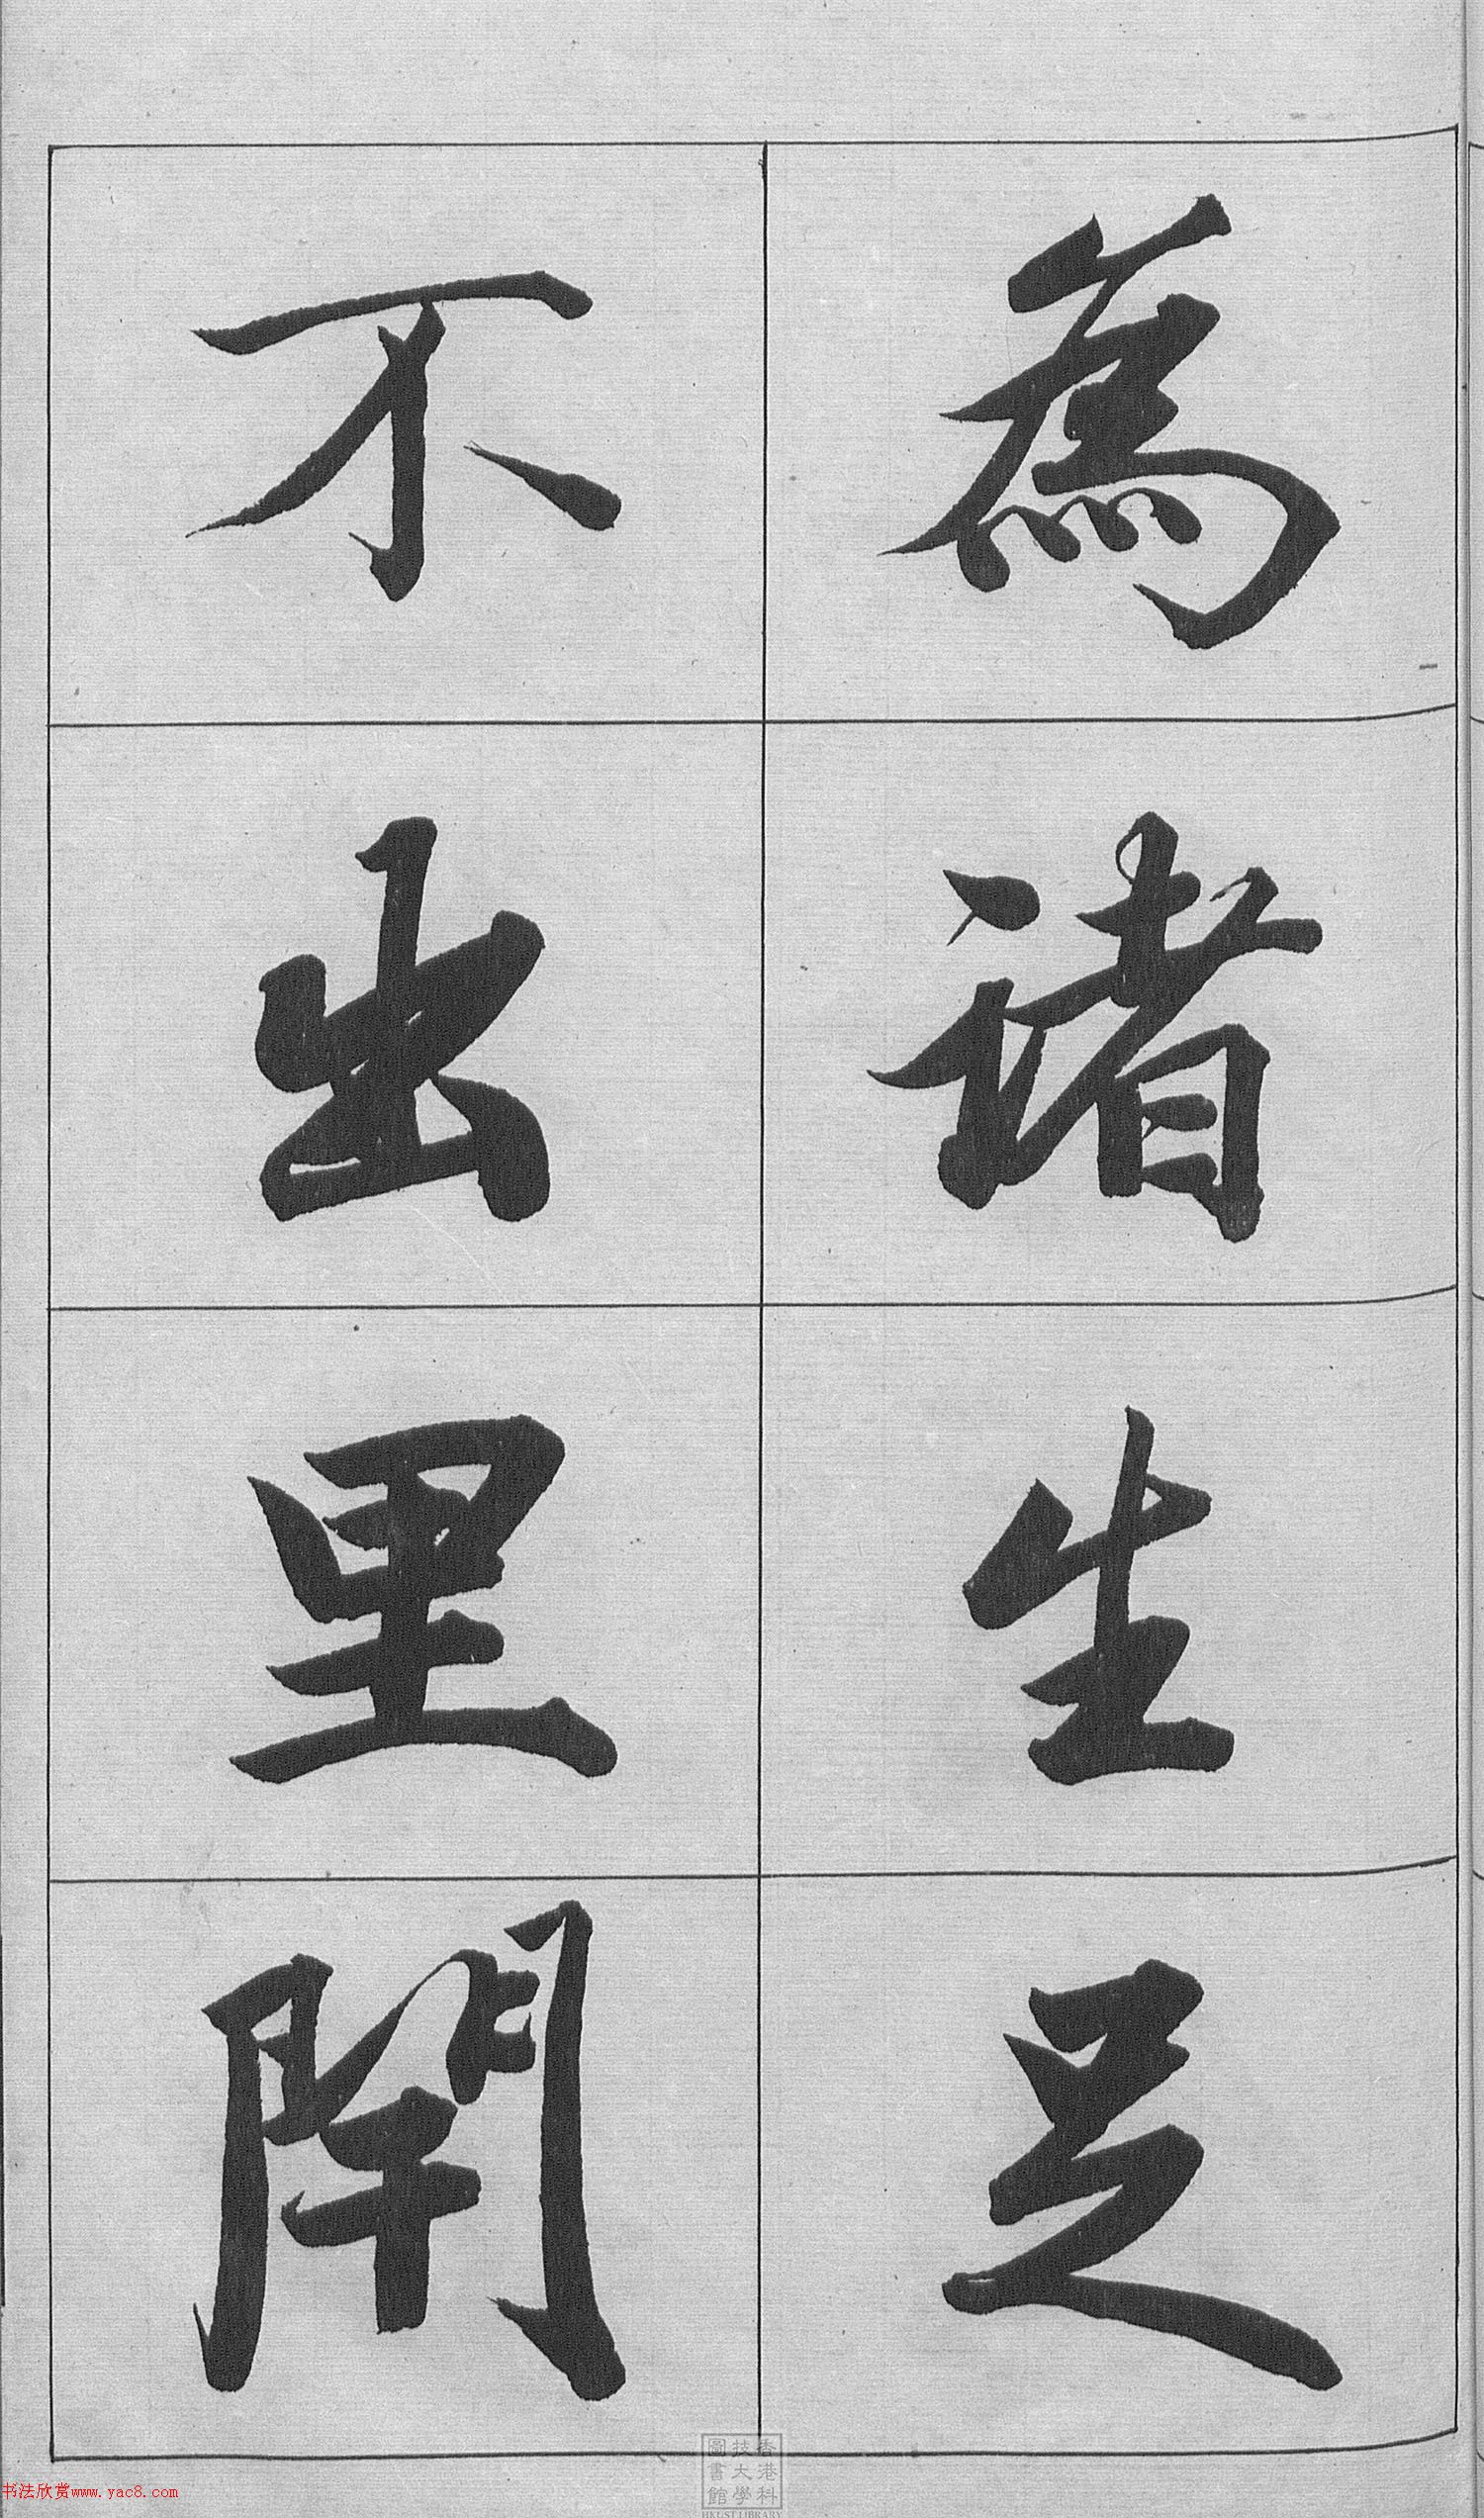 為諸生足
不出里閈
香港科
技大學
圖書館
HKUST LIBRARY
书法欣赏www.yac8.com